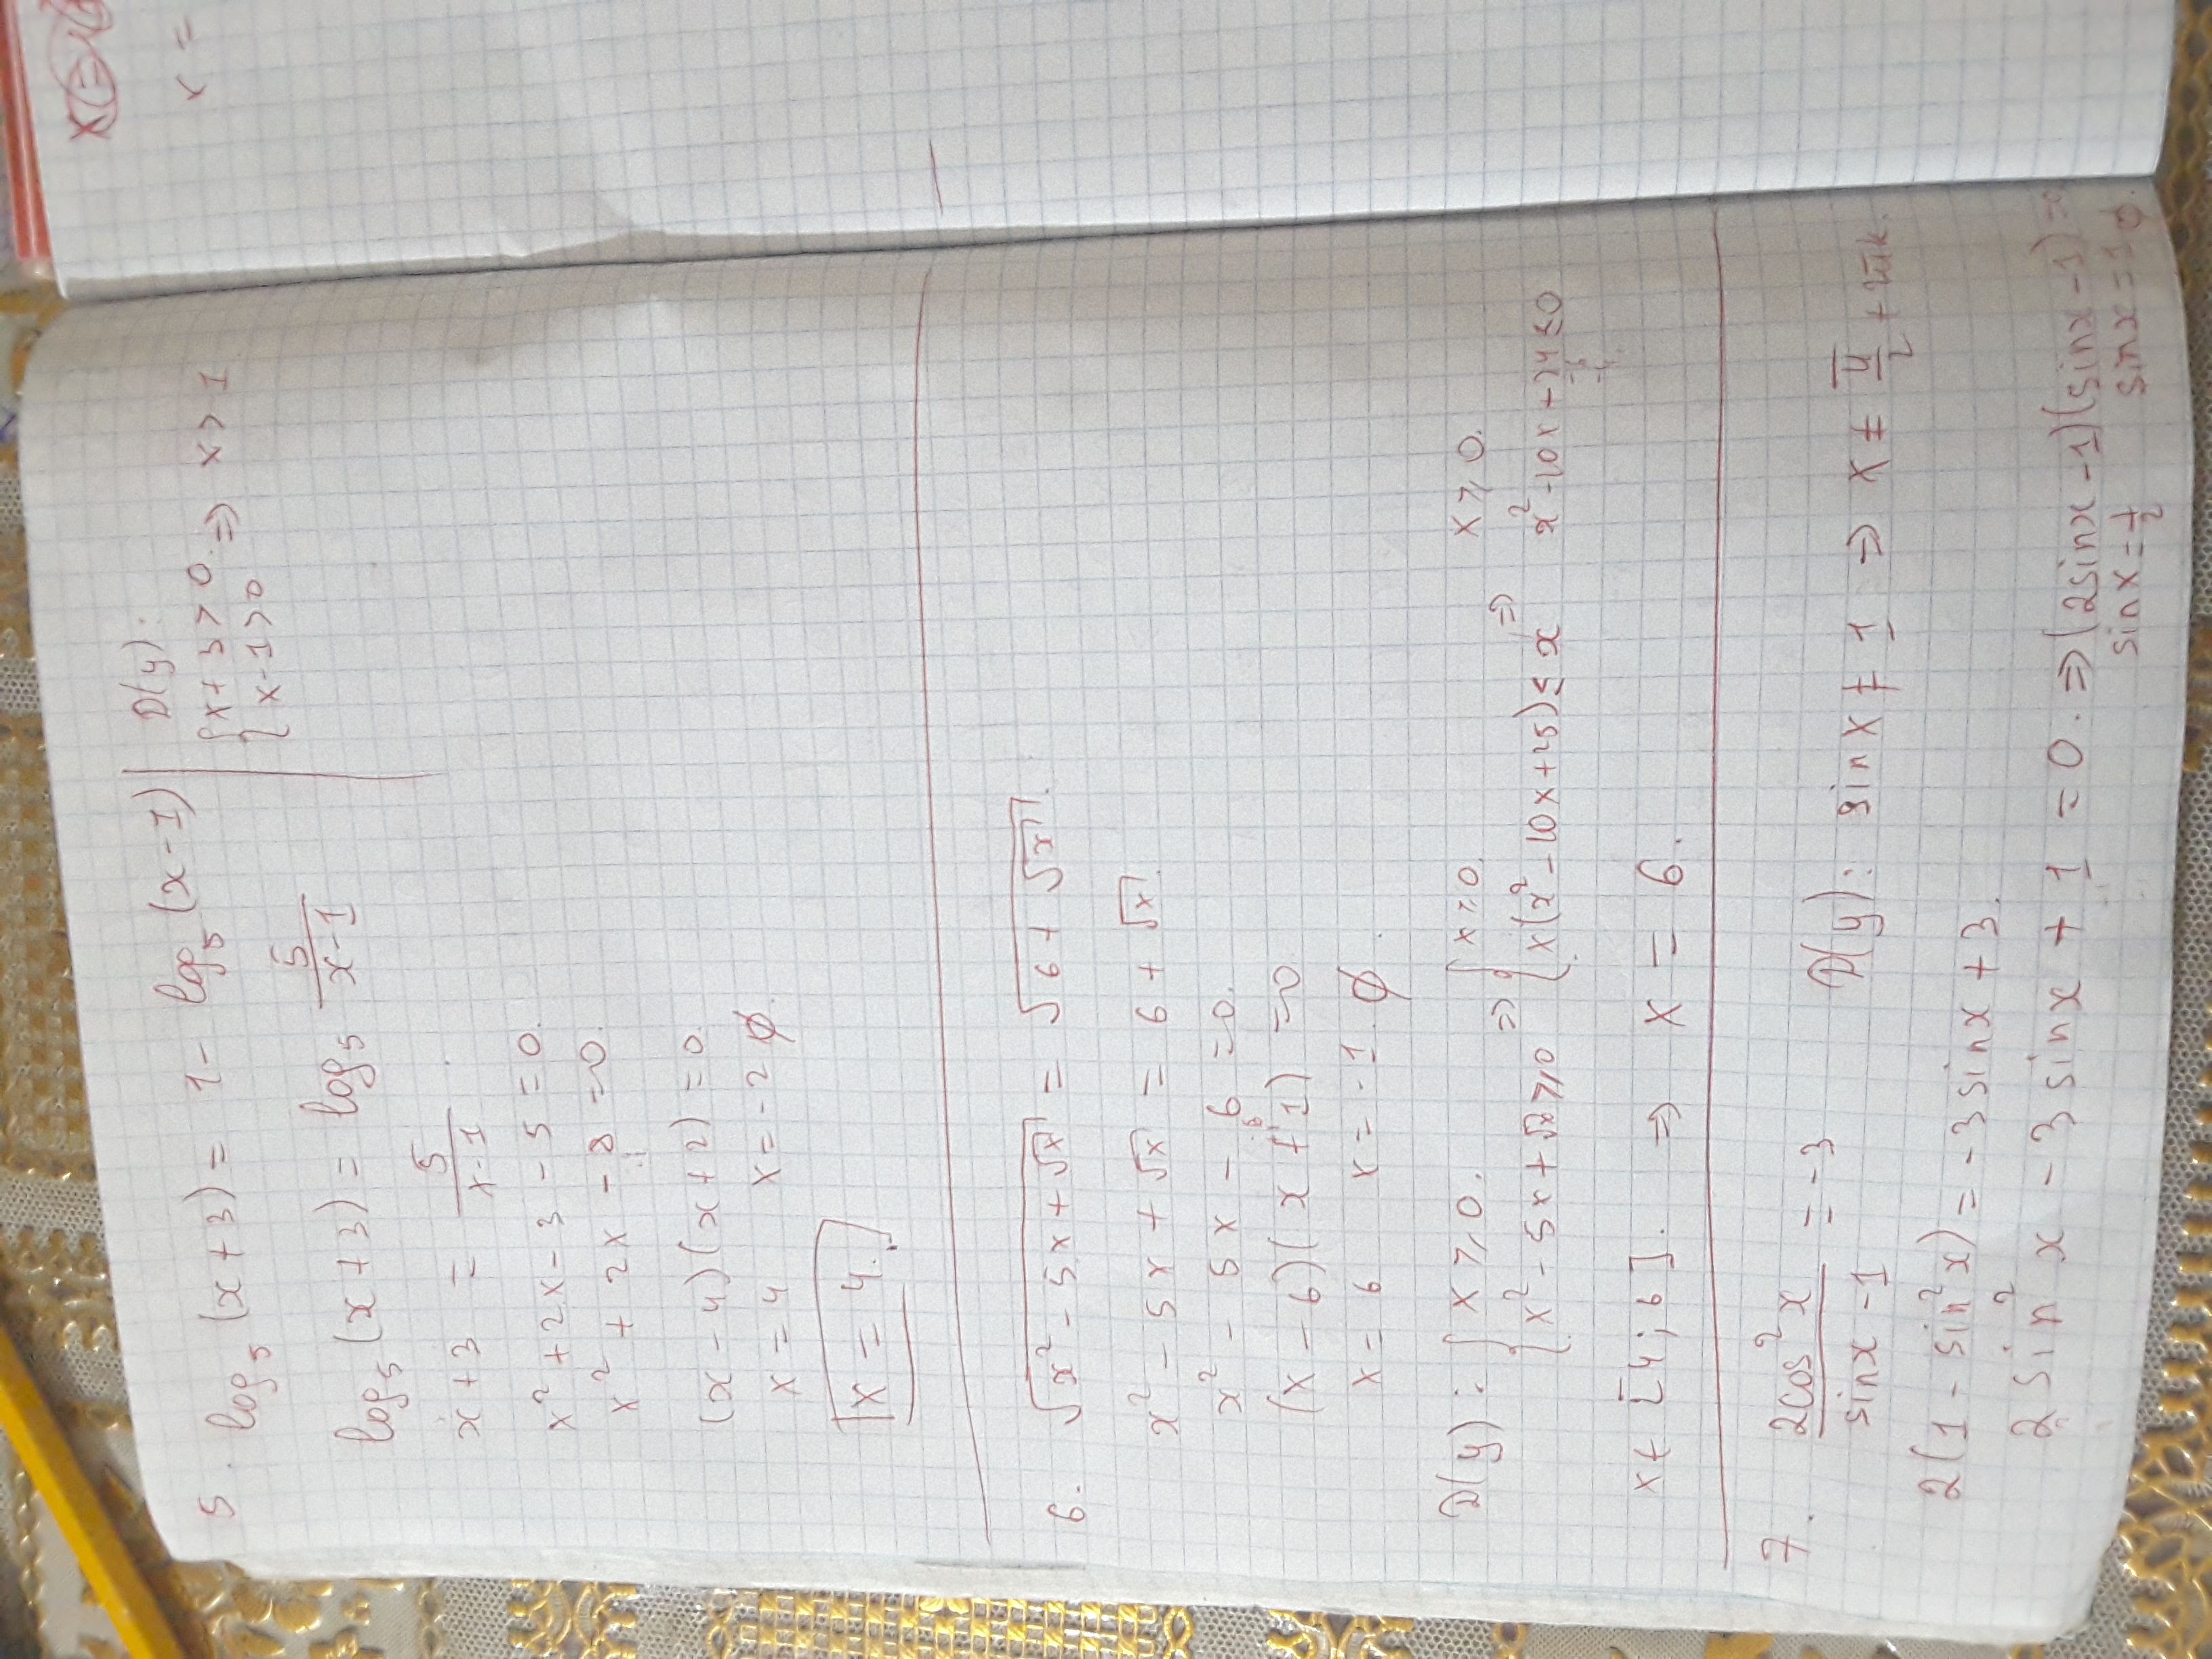 5. log₅(x+3) = 1 - log₅(x-1) | D(y):
{x+3>0 x-1>0 => x>1
log₅(x+3) = log₅ 5/(x-1)
x+3 = 5/(x-1).
x²+2x-3-5=0.
x²+2x-8=0.
(x-4)(x+2)=0.
x=4 x=-2 ∅.
x=4.
6. √(x²-5x+√x) = √(6+√x).
x²-5x+√x = 6+√x.
x²-5x-6=0.
(x-6)(x+1)=0
x=6 x=-1. ∅.
D(y): {x⩾0. x²-5x+√x⩾0 => {x⩾0. x(x²-10x+25)≤x => x⩾0. x²-10x+24≤0
x∈[4;6]. => x=6.
7. 2cos²x/(sinx-1) = -3 D(y): sinx≠1 => x≠π/2+2πk.
2(1-sin²x)=-3sinx+3.
2sin²x-3sinx+1=0. => (2sinx-1)(sinx-1)=0
sinx=1/2 sinx=1 ∅
x =